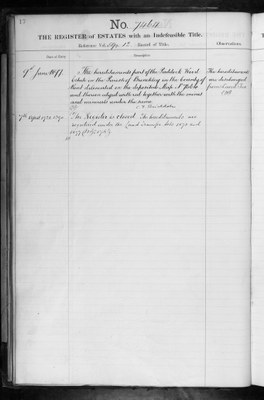 17
No.
THE REGISTER of ESTATES with an Indefeasible Title.
Reference Vol. Page 17. Record of Title.
Observations.
Date of Entry.
Description.
9th June 1877
The hereditaments part of the Paddock Wood
Estate in the Parish of Brenchley in the County of
Kent delineated on the deposited Map No
and thereon edged with red together with the mines
and minerals under the same
The hereditaments
are discharged
from Land Tax
7th April
The Register is closed. The hereditaments are
registered under the Land Transfer Acts 1875 and
1897